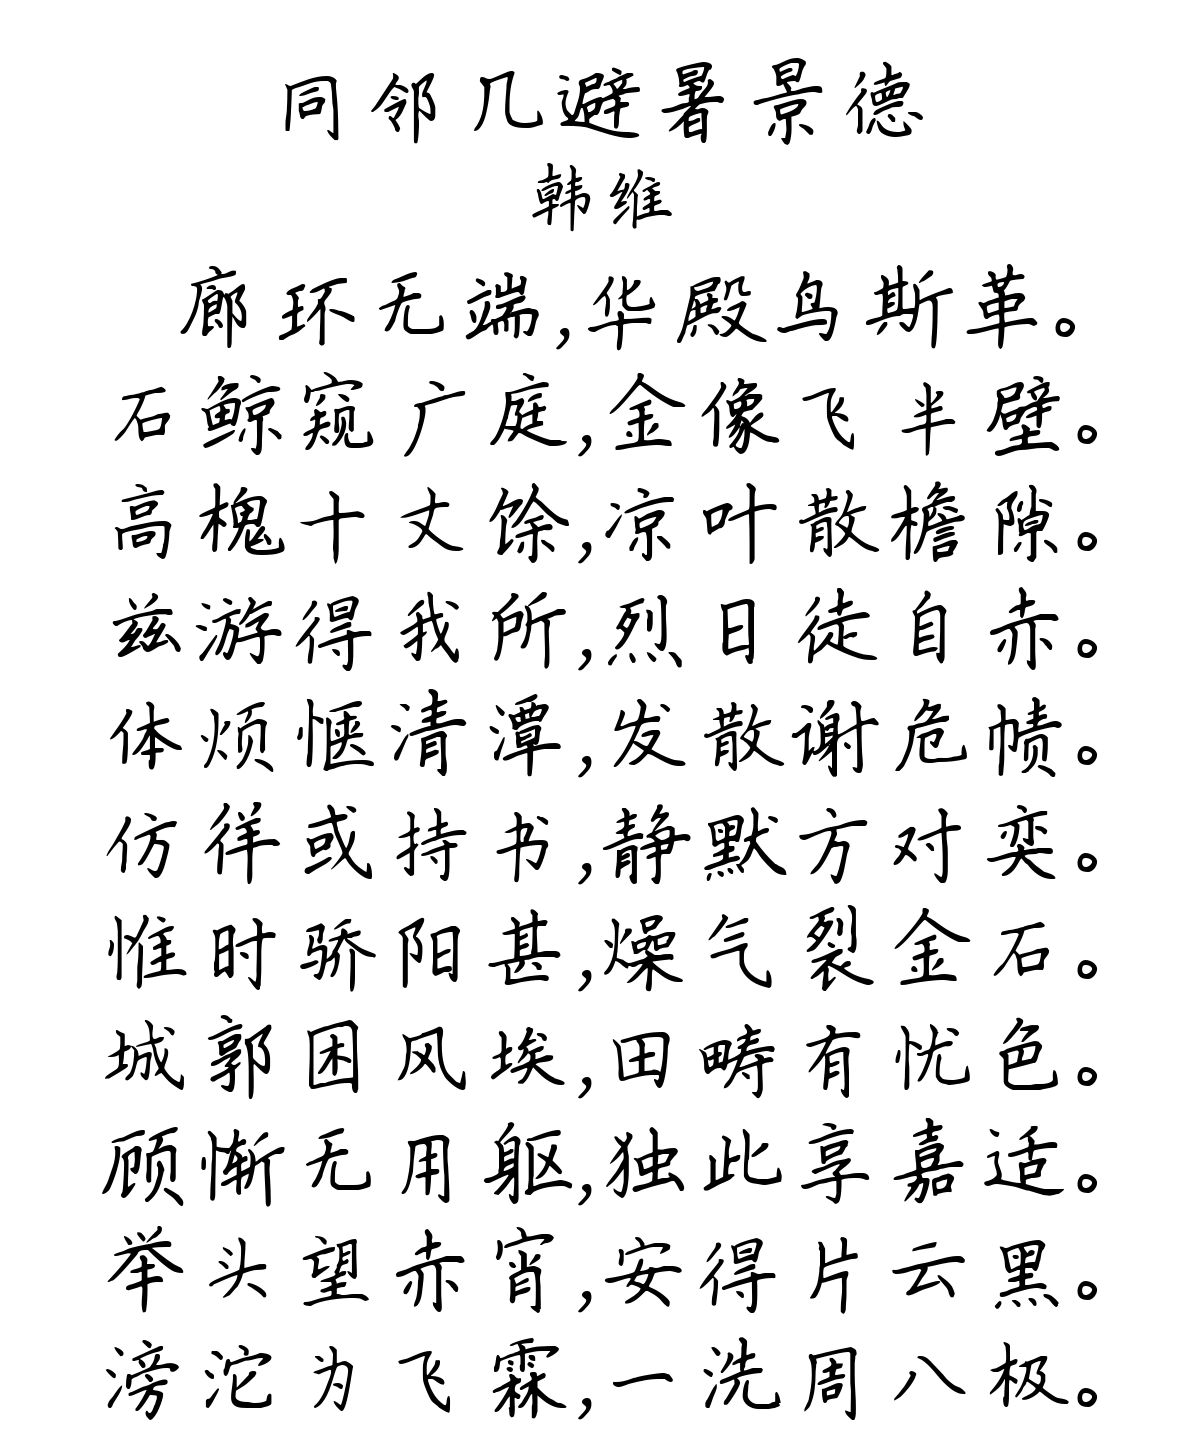 同邻几避暑景德
韩维
廊环无端,华殿鸟斯革。
石鲸窥广庭,金像飞半壁。
高槐十丈馀,凉叶散檐隙。
兹游得我所,烈日徒自赤。
体烦惬清潭,发散谢危帻。
仿徉或持书,静默方对奕。
惟时骄阳甚,燥气裂金石。
城郭困风埃,田畴有忧色。
顾惭无用躯,独此享嘉适。
举头望赤宵,安得片云黑。
滂沱为飞霖,一洗周八极。